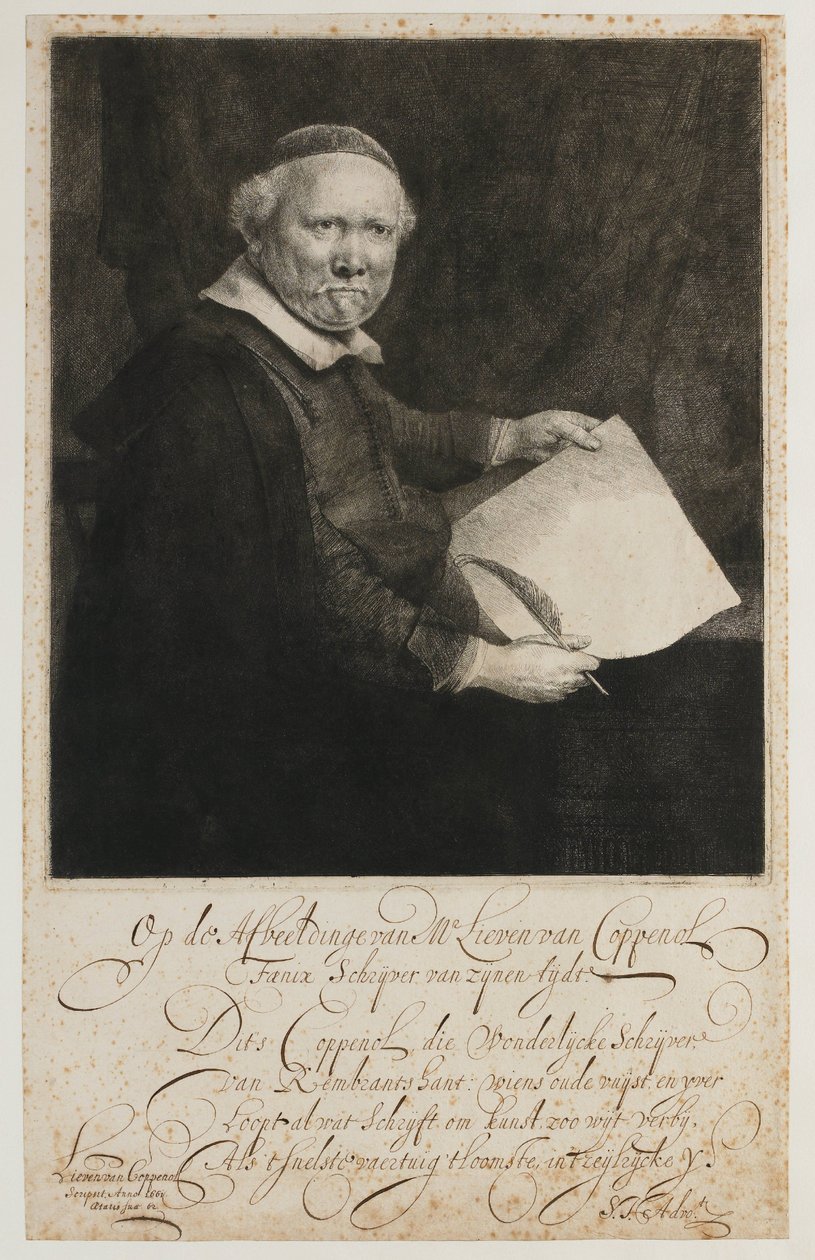 Op de Afbeeldinge van Mr Lieven van Coppenol
Fænix Schrijver van zijnen tijdt.
Dit's Coppenol, die Wonderlijcke Schrijver,
Van Rembrants hant: wiens oude vuijst, en yver
Loopt al wat Schrijft om kunst, zoo wijt verby,
Als 't snelste vaertuig 't loomste, in 't zeylrijcke Y.
Lieven van Coppenol
Scripsit, Anno
Ætatis suæ 62
Advot.